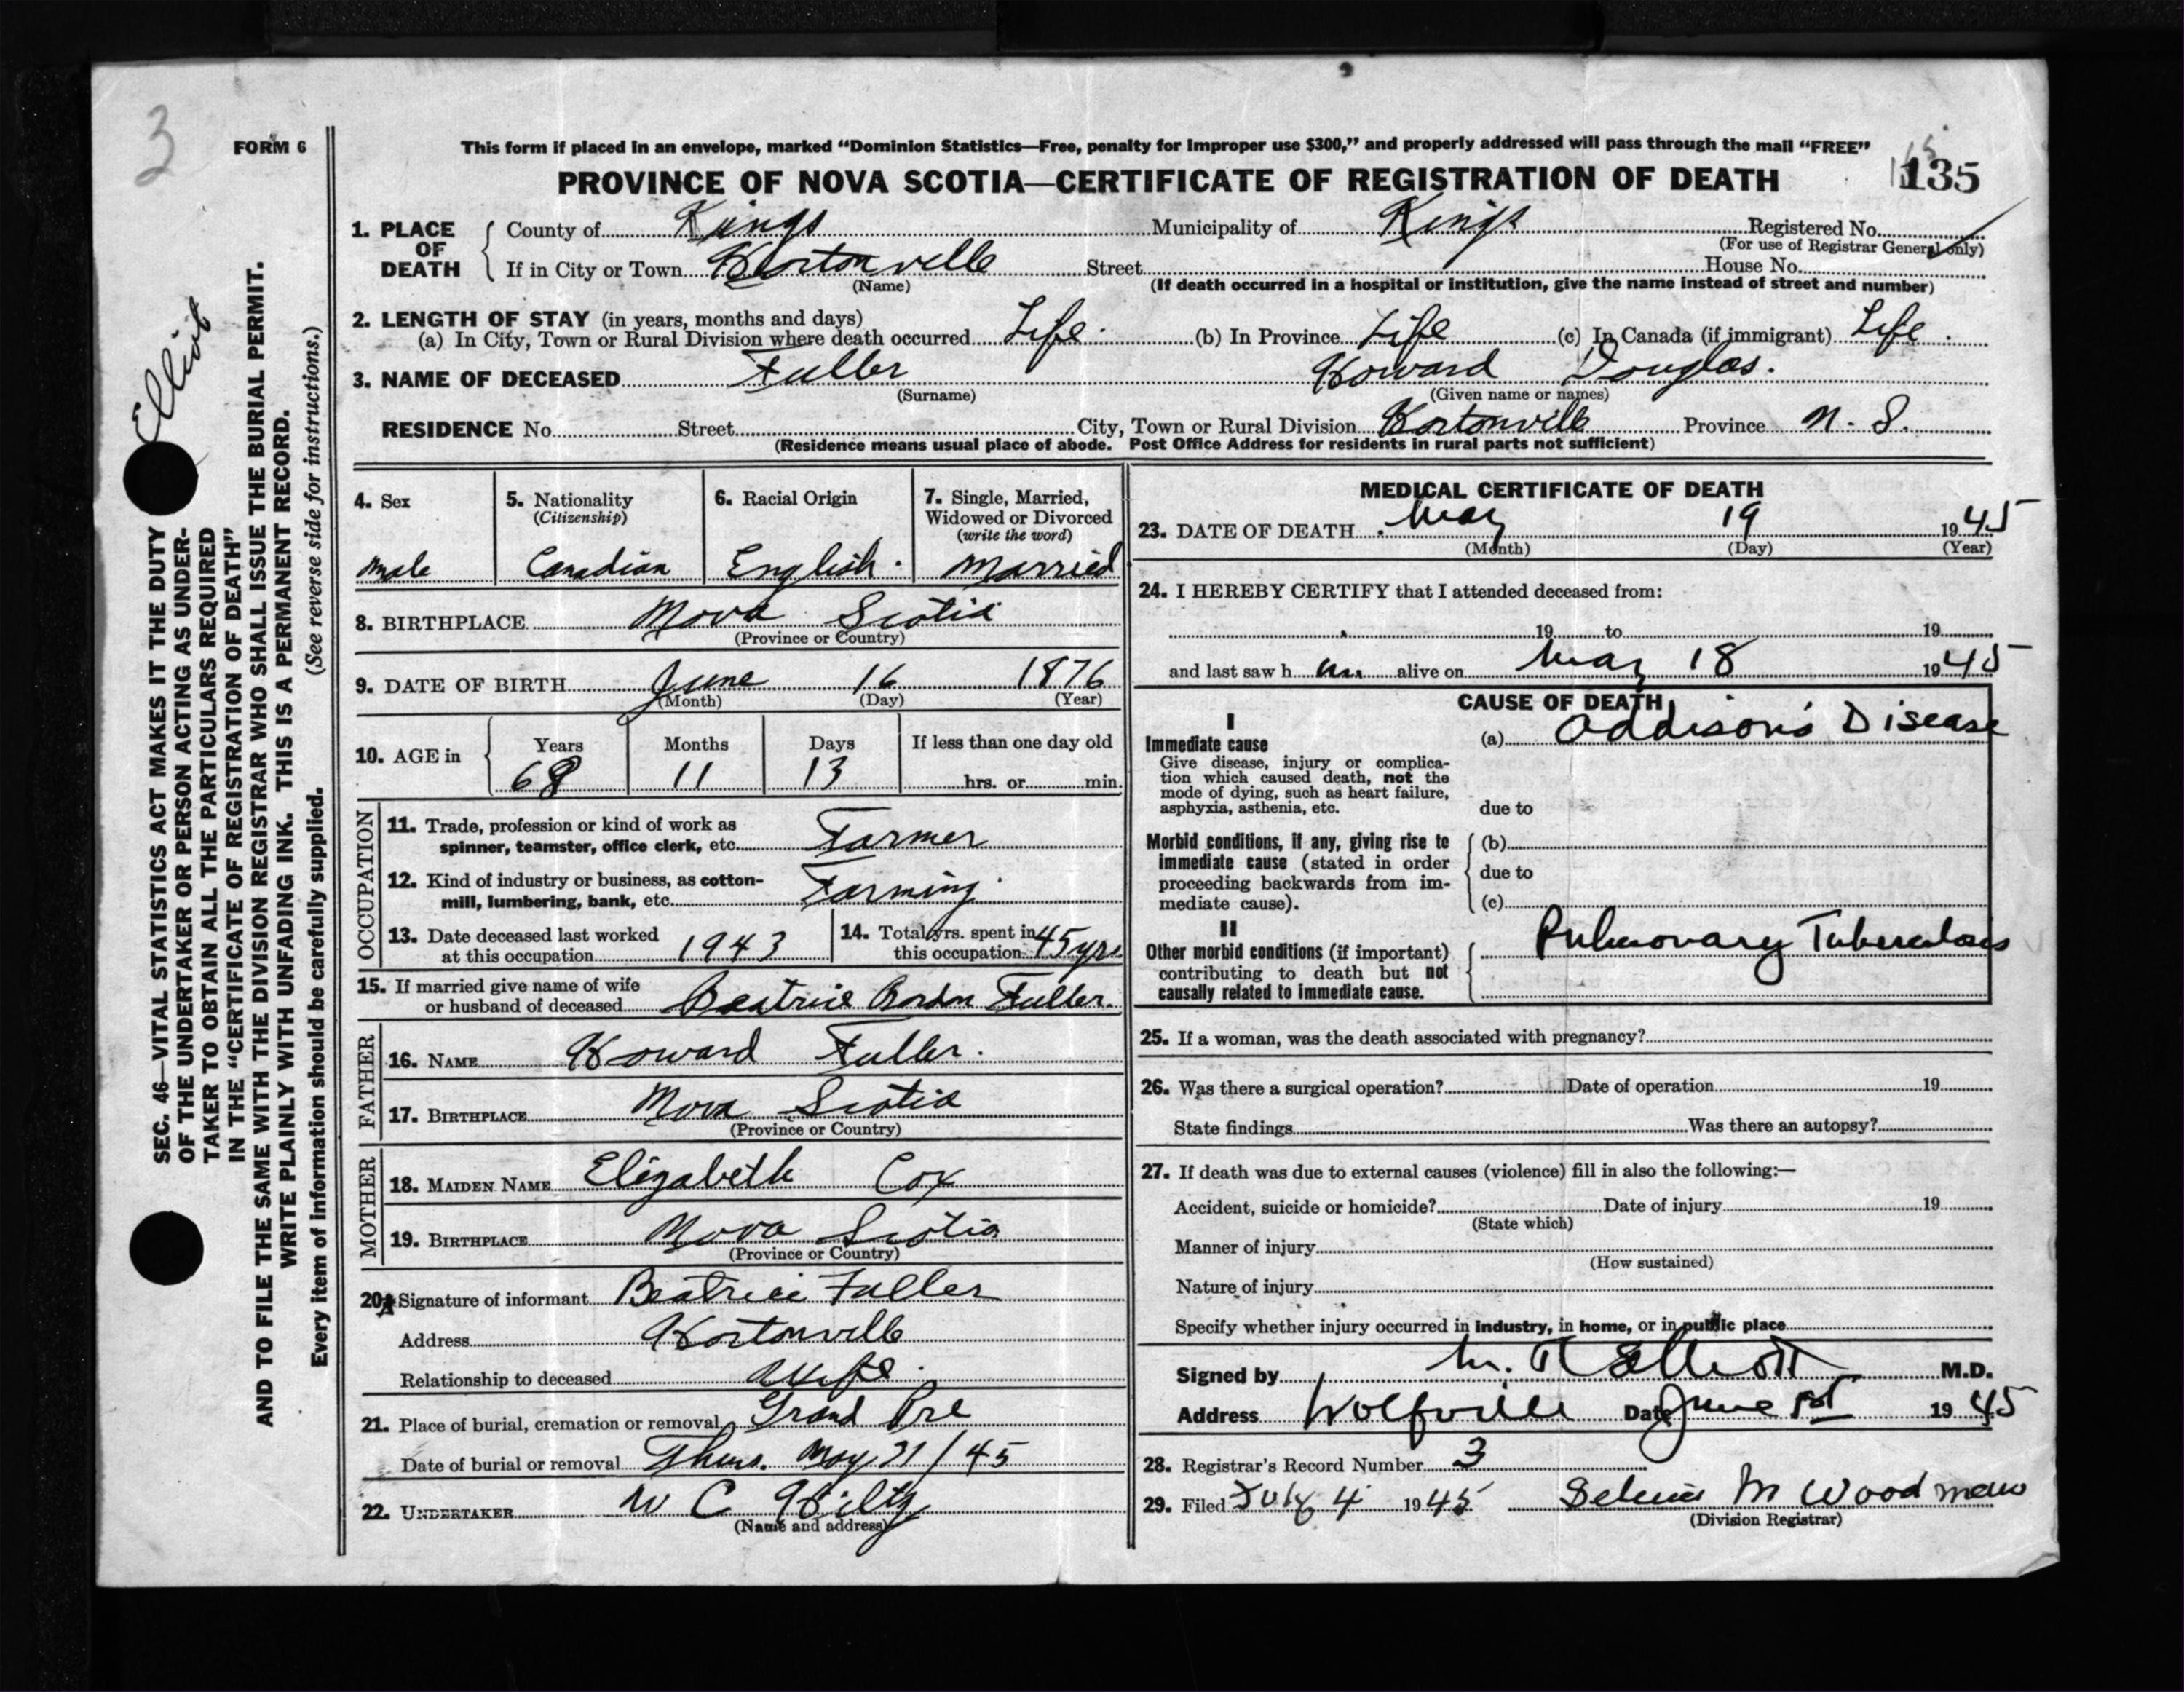 3
FORM 6
This form if placed in an envelope, marked “Dominion Statistics—Free, penalty for improper use $300,” and properly addressed will pass through the mail “FREE”
PROVINCE OF NOVA SCOTIA—CERTIFICATE OF REGISTRATION OF DEATH
135
1. PLACE OF DEATH
County of Kings Municipality of Kings Registered No.
(For use of Registrar General only)
If in City or Town Hortonville Street House No.
(Name) (If death occurred in a hospital or institution, give the name instead of street and number)
2. LENGTH OF STAY (in years, months and days)
(a) In City, Town or Rural Division where death occurred Life. (b) In Province Life (c) In Canada (if immigrant) Life.
3. NAME OF DECEASED Fuller Howard Douglas.
(Surname) (Given name or names)
RESIDENCE No. Street City, Town or Rural Division Hortonville Province N. S.
(Residence means usual place of abode. Post Office Address for residents in rural parts not sufficient)
4. Sex
Male
5. Nationality
(Citizenship)
Canadian
6. Racial Origin
English.
7. Single, Married,
Widowed or Divorced
(write the word)
Married
8. BIRTHPLACE Nova Scotia
(Province or Country)
9. DATE OF BIRTH June 16 1876
(Month) (Day) (Year)
10. AGE in
Years Months Days If less than one day old
68 11 13 hrs. or min.
OCCUPATION
11. Trade, profession or kind of work as
spinner, teamster, office clerk, etc. Farmer
12. Kind of industry or business, as cotton-
mill, lumbering, bank, etc. Farming.
13. Date deceased last worked
at this occupation 1943
14. Total yrs. spent in
this occupation 45 yrs
15. If married give name of wife
or husband of deceased Beatrice Borden Fuller.
FATHER
16. NAME Howard Fuller.
17. BIRTHPLACE Nova Scotia
(Province or Country)
MOTHER
18. MAIDEN NAME Elizabeth Cox
19. BIRTHPLACE Nova Scotia
(Province or Country)
20. Signature of informant Beatrice Fuller
Address Hortonville
Relationship to deceased Wife.
21. Place of burial, cremation or removal Grand Pre
Date of burial or removal Thurs. May 31/45
22. UNDERTAKER W C Hiltz
(Name and address)
MEDICAL CERTIFICATE OF DEATH
23. DATE OF DEATH May 19 1945
(Month) (Day) (Year)
24. I HEREBY CERTIFY that I attended deceased from:
19 to 19
and last saw h im alive on May 18 1945
CAUSE OF DEATH
I
Immediate cause
Give disease, injury or complica-
tion which caused death, not the
mode of dying, such as heart failure,
asphyxia, asthenia, etc.
(a) Addison's Disease
due to
Morbid conditions, if any, giving rise to
immediate cause (stated in order
proceeding backwards from im-
mediate cause).
(b)
due to
(c)
II
Other morbid conditions (if important)
contributing to death but not
causally related to immediate cause.
Pulmonary Tuberculosis
25. If a woman, was the death associated with pregnancy?
26. Was there a surgical operation? Date of operation 19
State findings Was there an autopsy?
27. If death was due to external causes (violence) fill in also the following:—
Accident, suicide or homicide? Date of injury 19
(State which)
Manner of injury
(How sustained)
Nature of injury
Specify whether injury occurred in industry, in home, or in public place
Signed by M. R Elliott M.D.
Address Wolfville Date June 1st 1945
28. Registrar's Record Number 3
29. Filed July 4 1945 M Woodman
(Division Registrar)
Elliot
SEC. 46—VITAL STATISTICS ACT MAKES IT THE DUTY
OF THE UNDERTAKER OR PERSON ACTING AS UNDER-
TAKER TO OBTAIN ALL THE PARTICULARS REQUIRED
IN THE “CERTIFICATE OF REGISTRATION OF DEATH”
AND TO FILE THE SAME WITH THE DIVISION REGISTRAR WHO SHALL ISSUE THE BURIAL PERMIT.
WRITE PLAINLY WITH UNFADING INK. THIS IS A PERMANENT RECORD.
Every item of information should be carefully supplied. (See reverse side for instructions.)